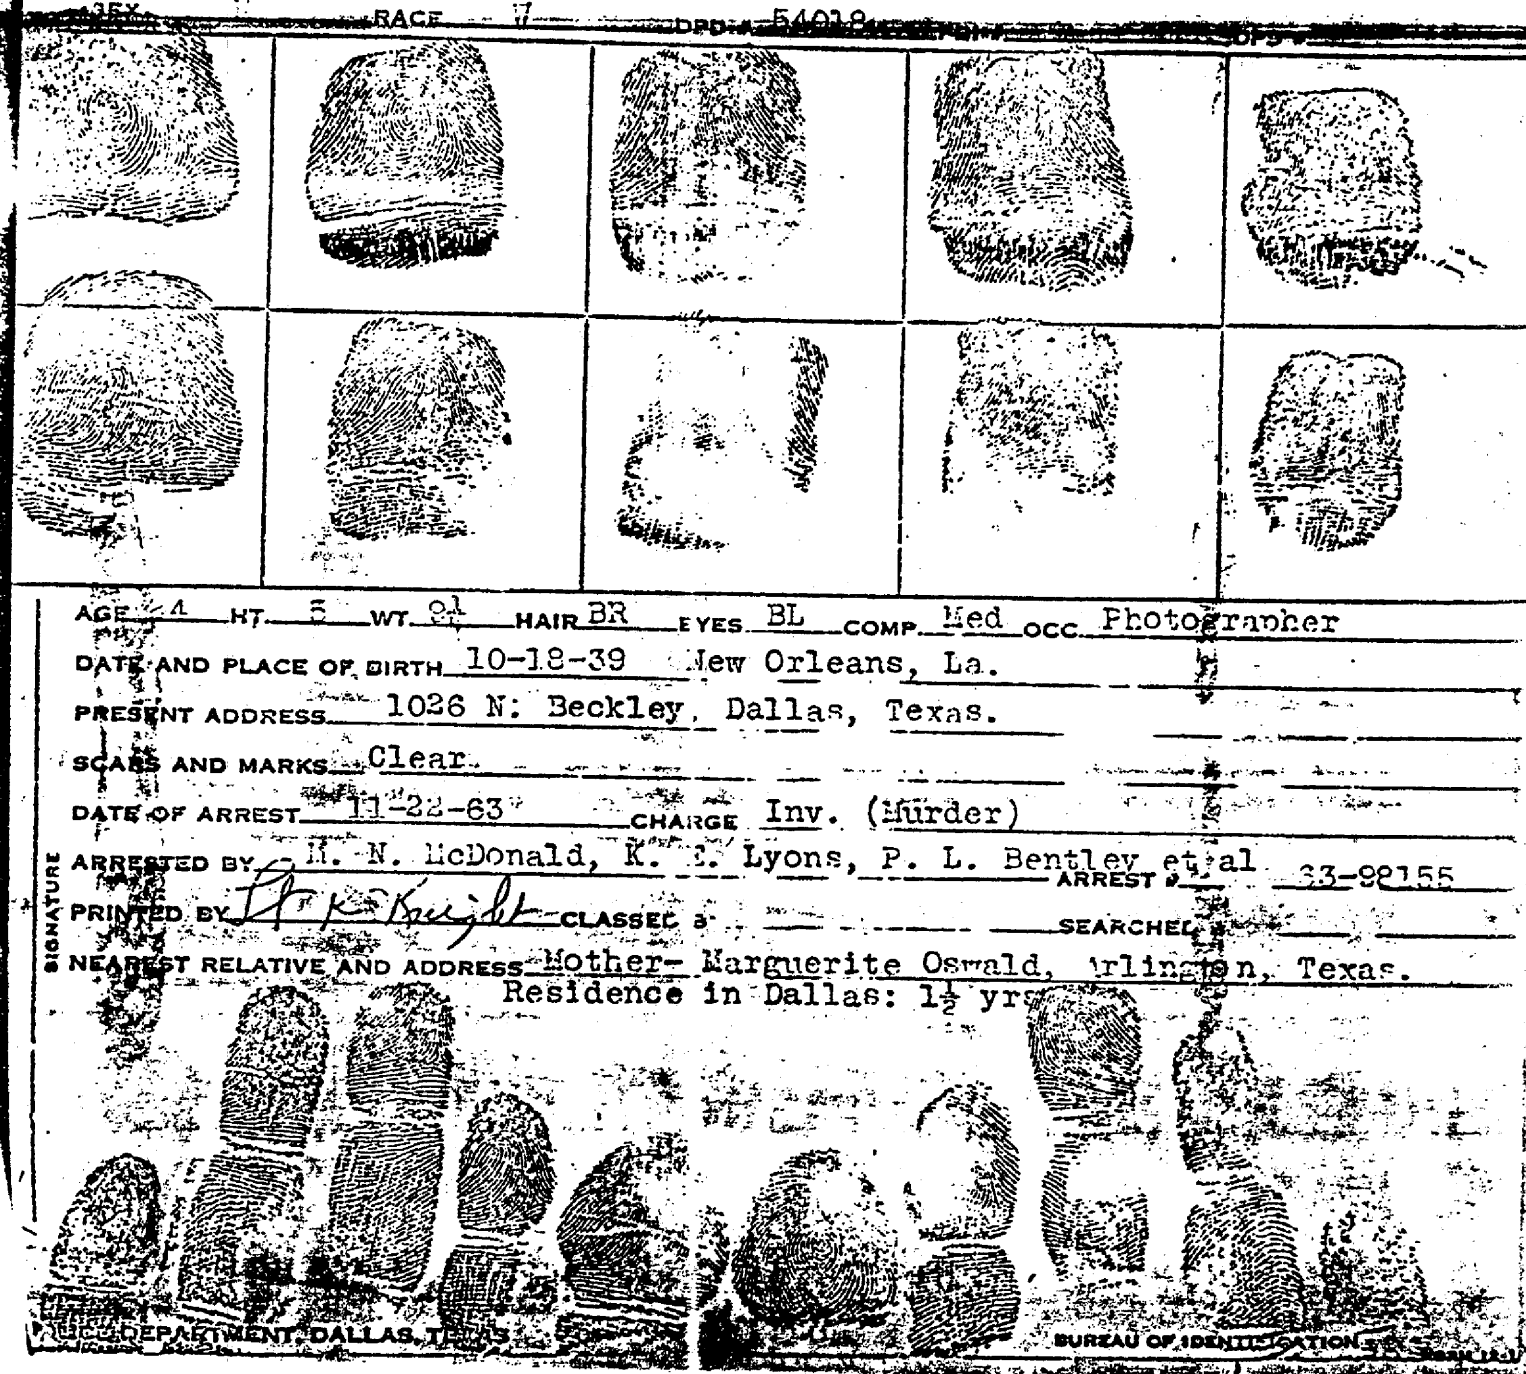 SEX RACE W DPD # 54018 DPS #
AGE 4 HT. 5 WT. HAIR BR EYES BL COMP. Med OCC. Photographer
DATE AND PLACE OF BIRTH 10-18-39 New Orleans, La.
PRESENT ADDRESS 1026 N. Beckley, Dallas, Texas.
SCARS AND MARKS Clear.
DATE OF ARREST 11-22-63 CHARGE Inv. (Murder)
ARRESTED BY M. N. McDonald, K. E. Lyons, P. L. Bentley et al ARREST # 63-98155
PRINTED BY Lt K Knight CLASSED SEARCHED
SIGNATURE
NEAREST RELATIVE AND ADDRESS Mother- Marguerite Oswald, Arlington, Texas.
Residence in Dallas: 1½ yrs
POLICE DEPARTMENT, DALLAS, TEXAS BUREAU OF IDENTIFICATION